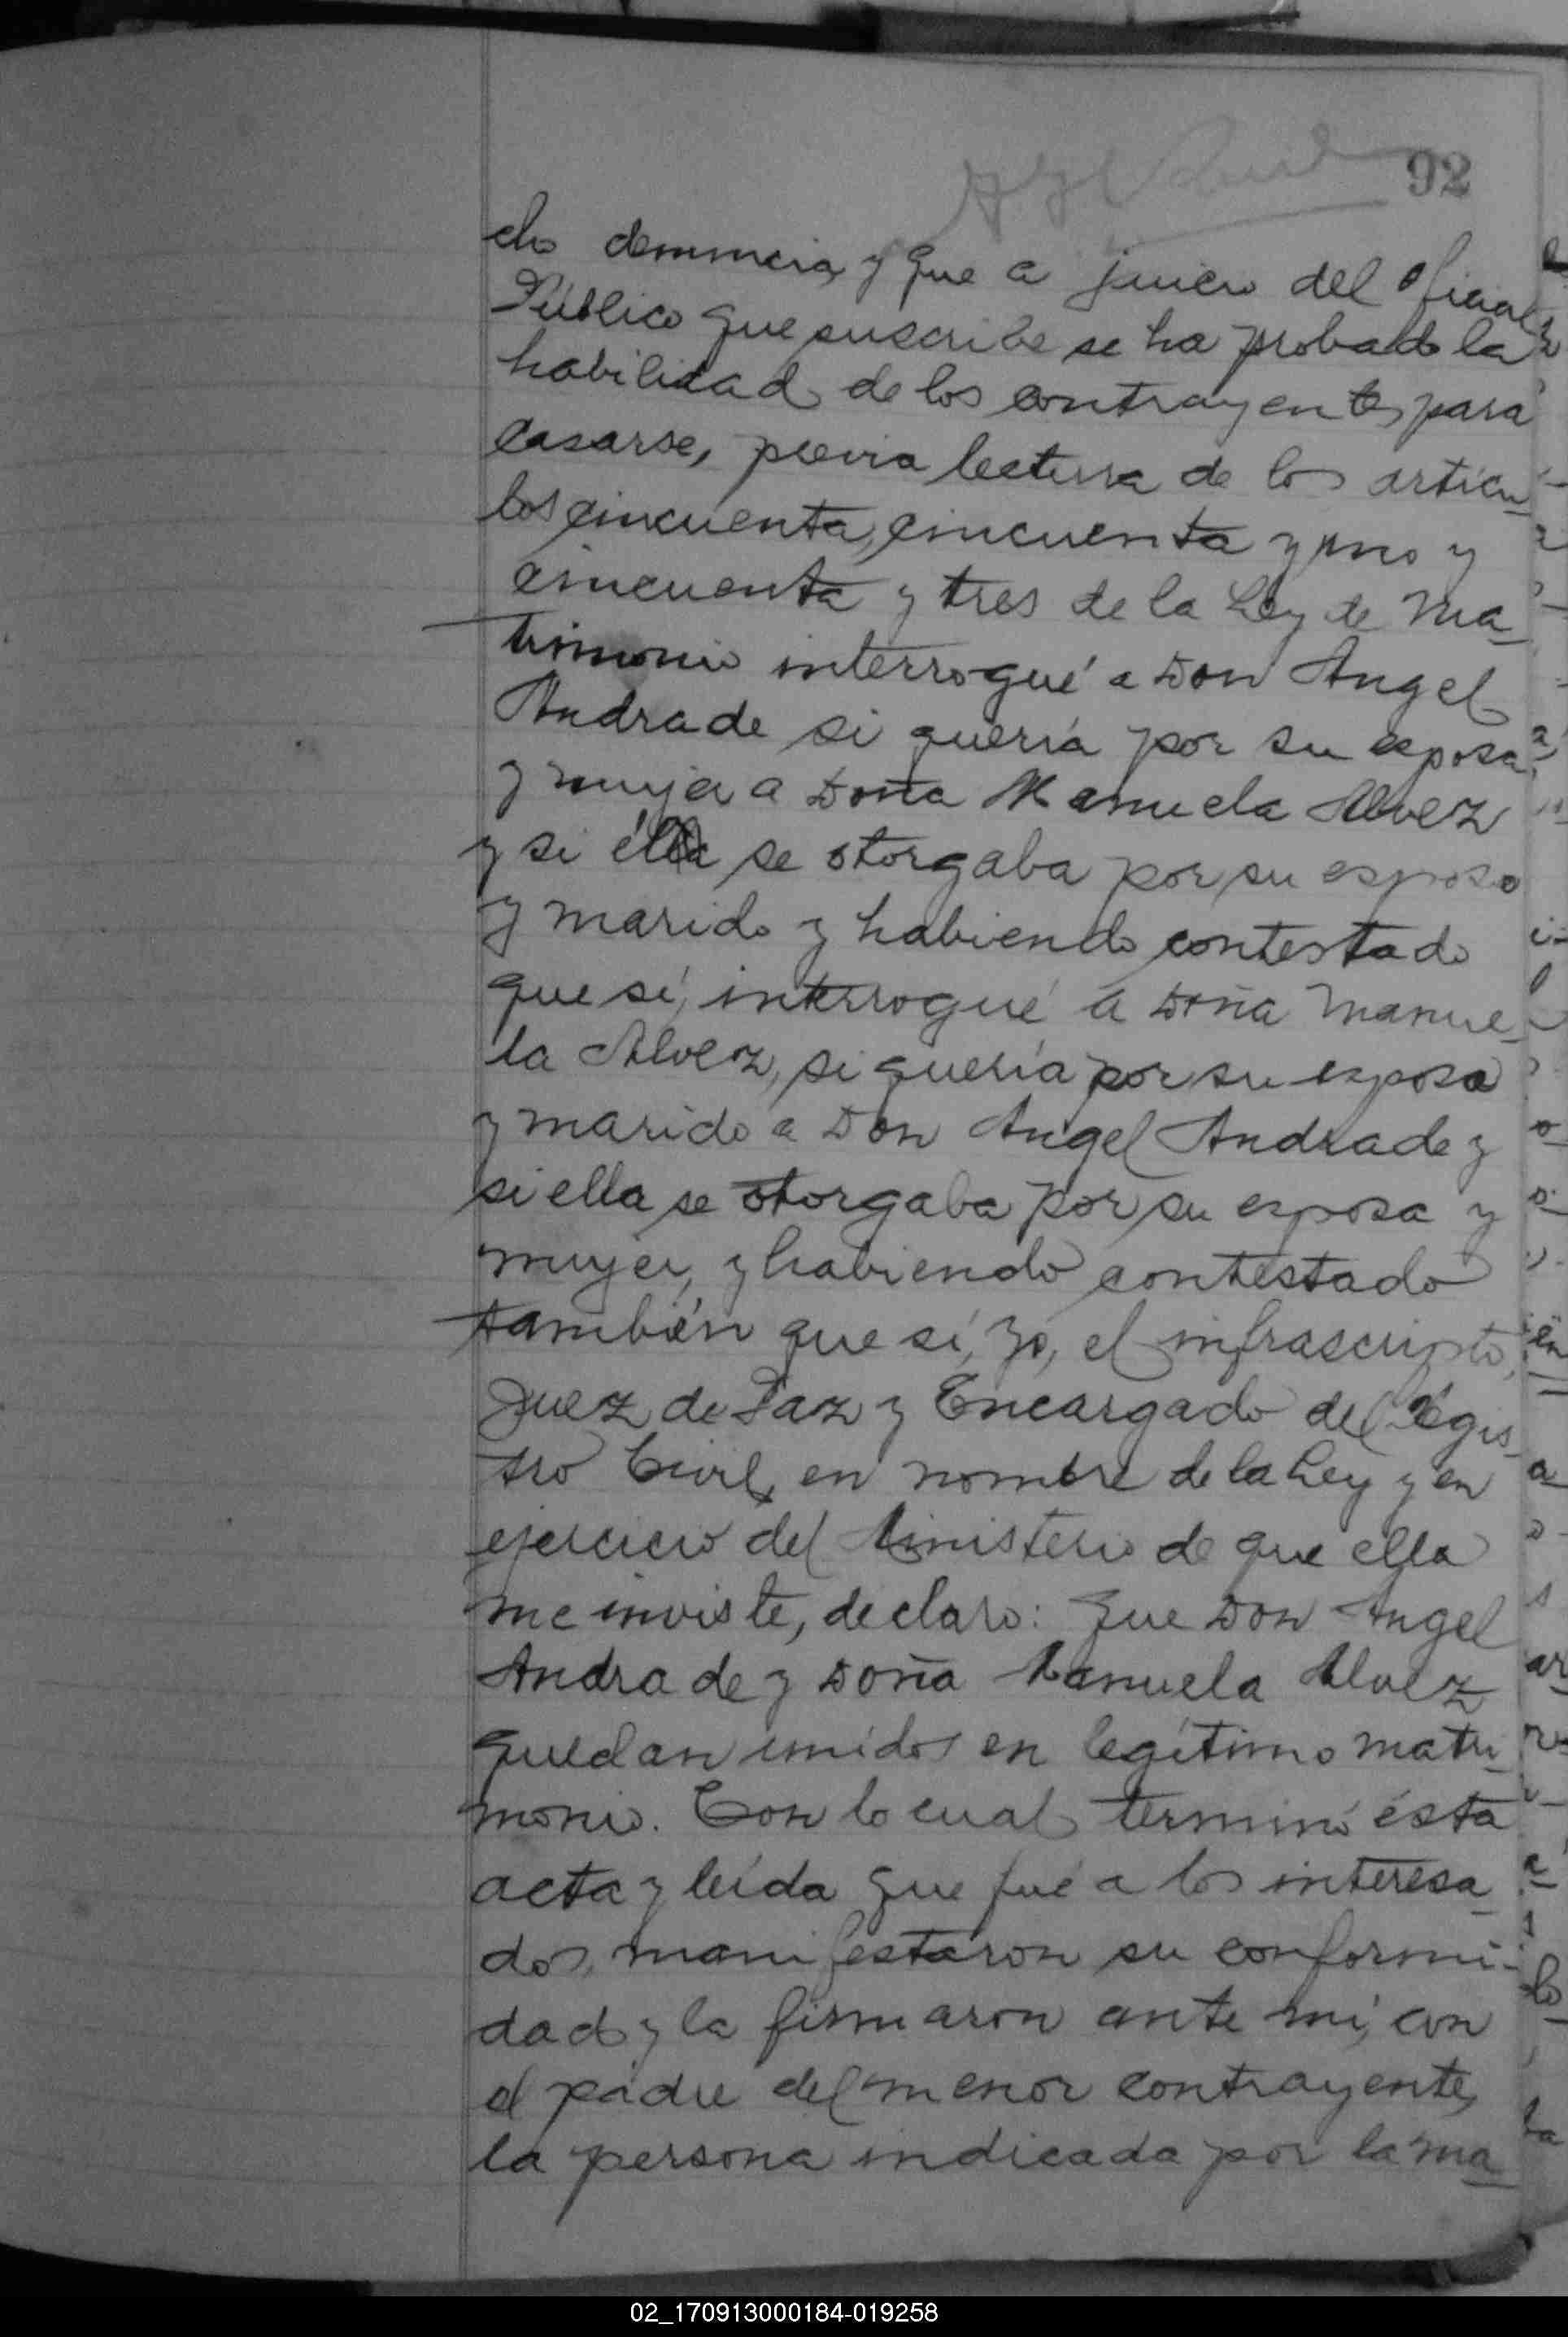 92
cho denuncia, y que a juicio del Oficial
Público que suscribe se ha probado la
habilidad de los contrayentes para
casarse, previa lectura de los artícu-
los cincuenta, cincuenta y uno y
cincuenta y tres de la Ley de Ma-
trimonio interrogué a Don Angel
Andrade si quería por su esposa
y mujer a Doña Manuela Alvez
y si él se otorgaba por su esposo
y marido y habiendo contestado
que sí, interrogué a Doña Manue-
la Alvez, si quería por su esposo
y marido a Don Angel Andrade y
si ella se otorgaba por su esposa y
mujer, y habiendo contestado
también que sí, yo, el infrascripto,
Juez de Paz y Encargado del Regis-
tro Civil, en nombre de la Ley y en
ejercicio del Ministerio de que ella
me inviste, declaro: Que Don Angel
Andrade y Doña Manuela Alvez
quedan unidos en legítimo matri-
monio. Con lo cual terminó ésta
acta y leída que fué a los interesa-
dos, manifestaron su conformi-
dad y la firmaron ante mí, con
el padre del menor contrayente,
la persona indicada por la ma-
02_170913000184-019258